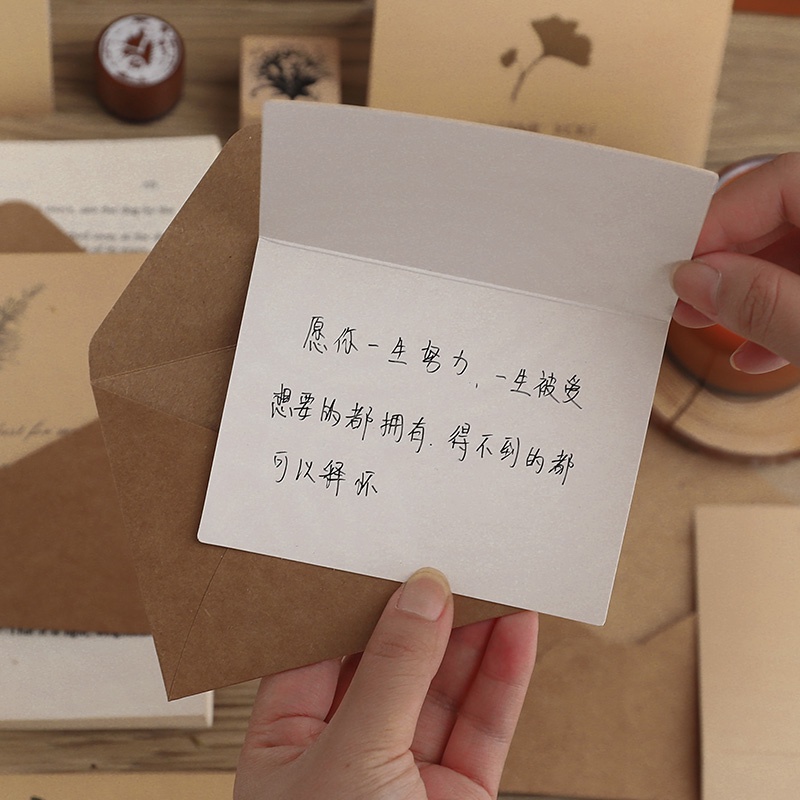 愿你一生努力，一生被爱
想要的都拥有.得不到的都
可以释怀